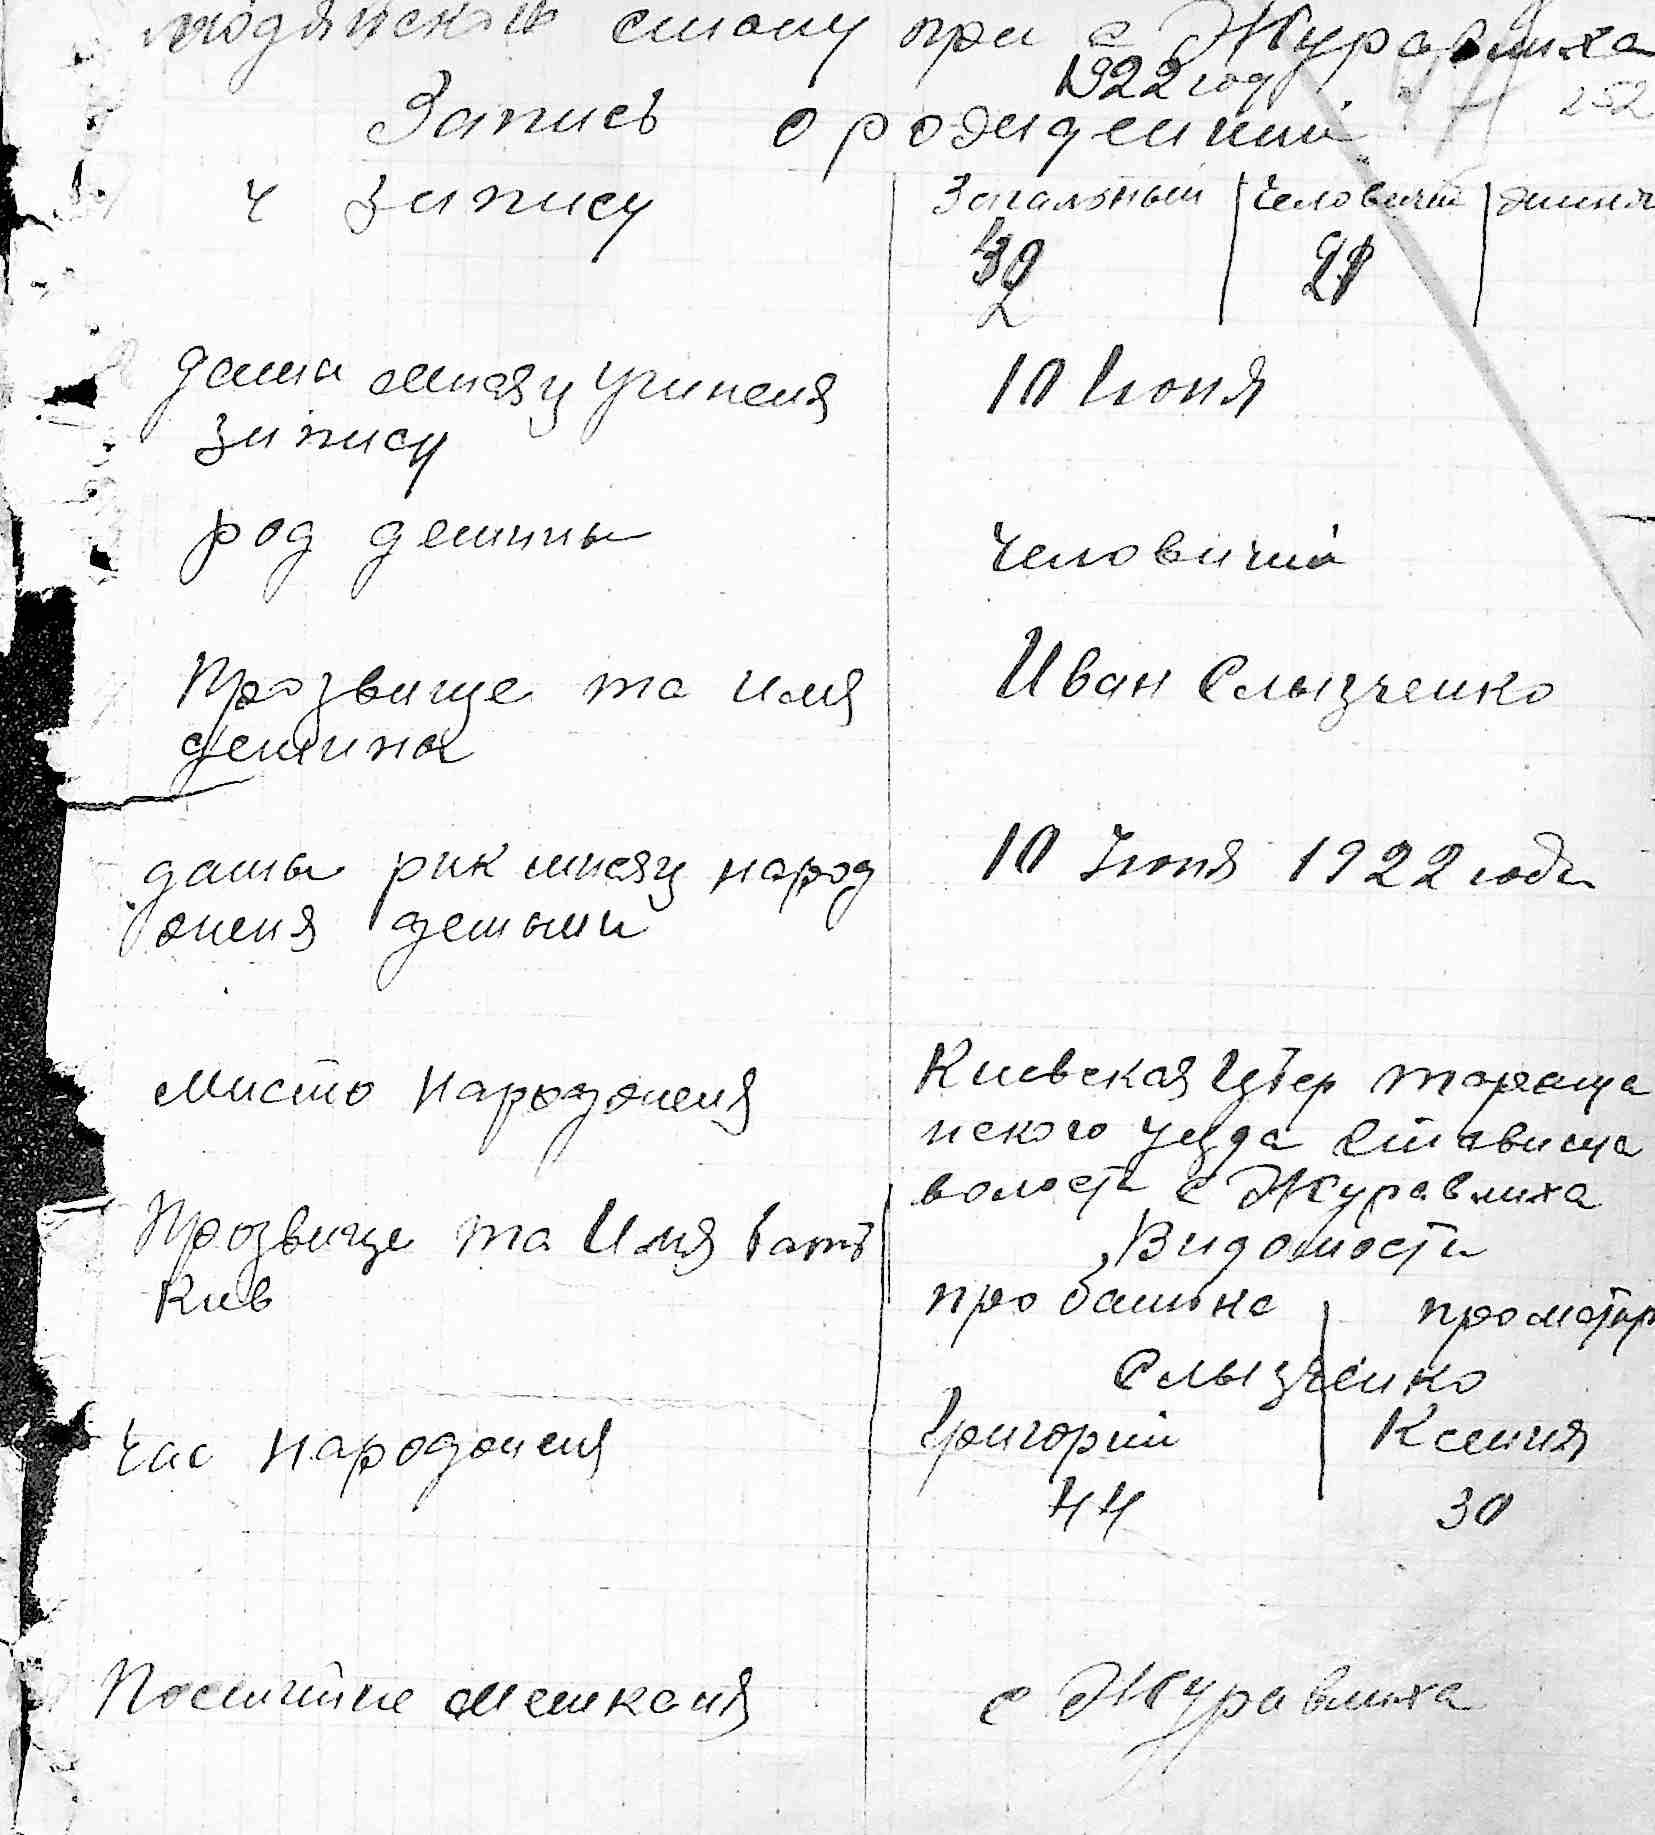 людянского стану при с Журавлиха
1922 год
252
Запись о рождении
ч запису
Загальный человичи
21
дата мисяц учиненя
запису
10 Июня
род детины
человичий
Прозвище та Имя
детины
Иван Слызченко
даты рик мисяц народ
жненя детыни
10 Июня 1922 года
Мисто народженя
Киевская Губер тараща
нского уезда Ставища
волости с Журавлиха
Прозвище та Имя бать
Кив
Видомости
про батька
про матир
Слызченко
Григорий
Ксения
Час народженя
44
30
Постийне мешканя
с Журавлиха